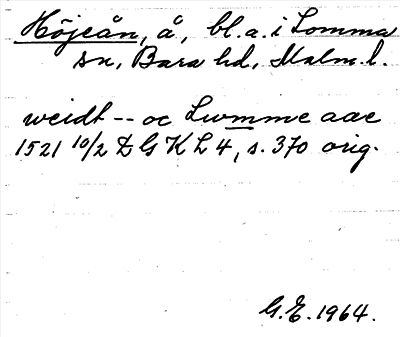 Höjeån, å, bl. a. i Lomma
sn, Bara hd, Malm. l.
weidt -- oc Lwmme aae
1521 10/2 D G K L 4, s. 370 orig.
G. E. 1964.